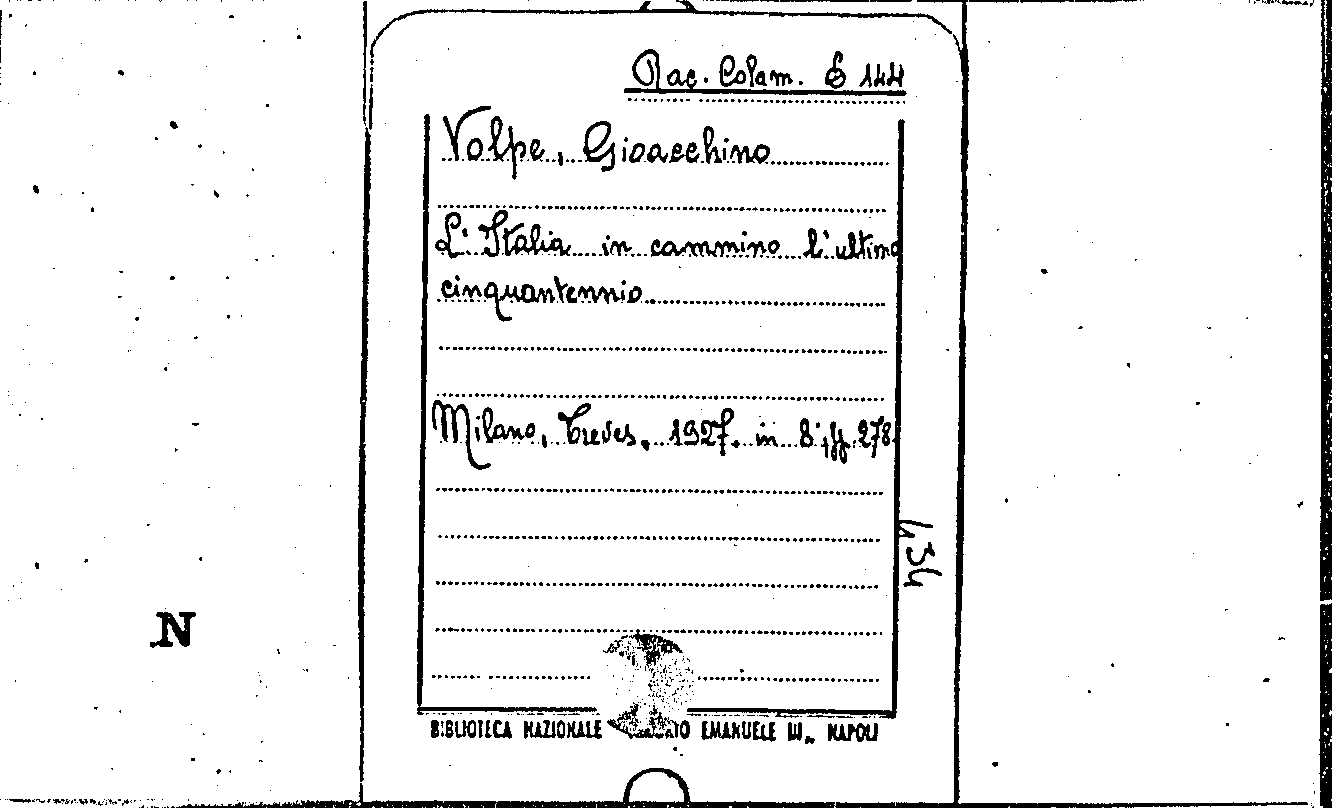 Rac. Colam. E 144
Volpe, Gioacchino
L'Italia in cammino l'ultimo
cinquantennio.
Milano, Treves, 1927. in 8°, pp. 278.
434
N
BIBLIOTECA NAZIONALE EMANUELE III„ NAPOLI